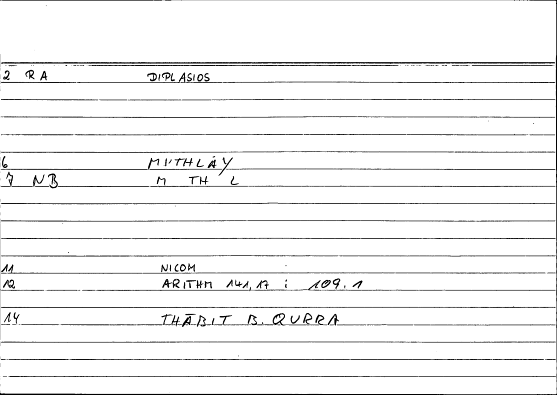 2 RA DIPLASIOS
6 MITHLAY
7 NB M TH L
11 NICOM
12 ARITHM 141,17 : 109.1
14 THĀBIT B. QURRA